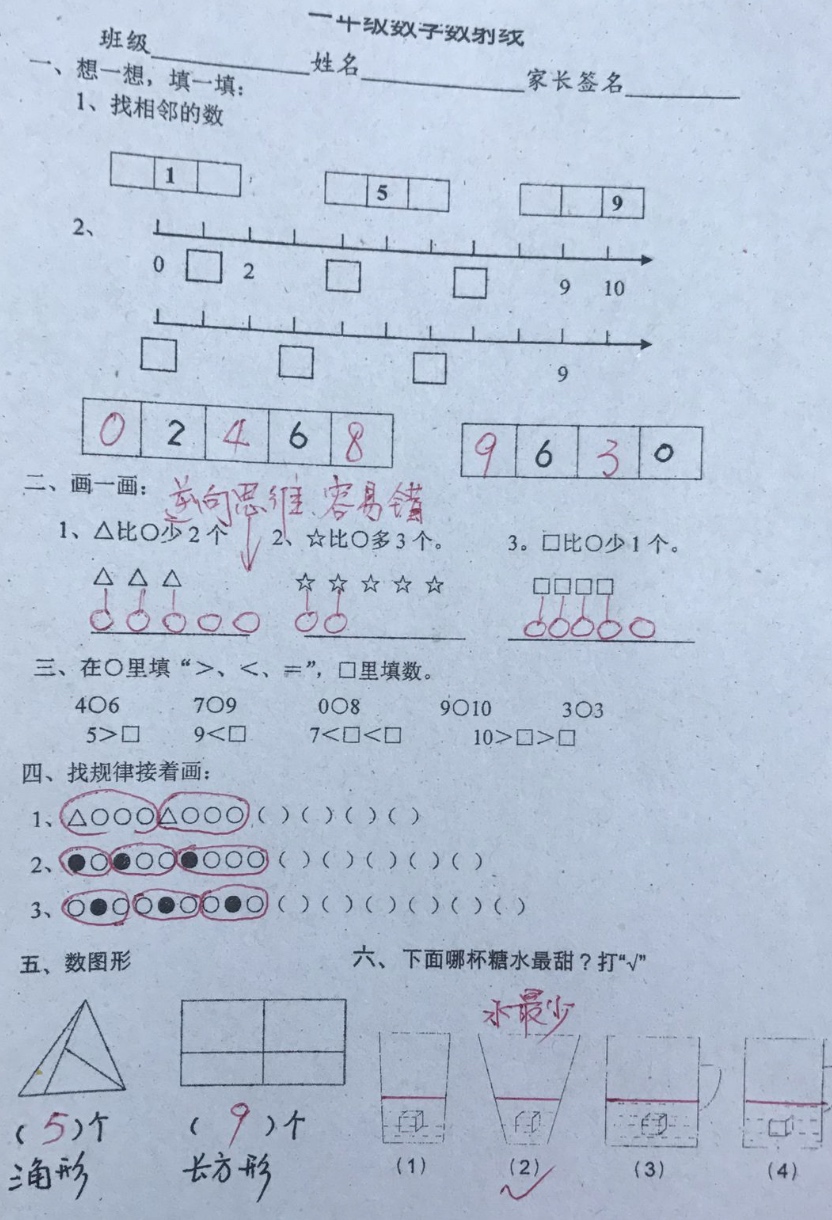 一年级数学数射线
班级 姓名 家长签名
一、想一想，填一填：
1、找相邻的数
1 5 9
2、
0 □ 2 □ □ 9 10
□ □ □ 9
0 2 4 6 8 9 6 3 0
二、画一画： 逆向思维、容易错
1、△比○少2个 2、☆比○多3个。 3。□比○少1个。
△ △ △ ☆ ☆ ☆ ☆ ☆ □□□□
○ ○ ○ ○ ○ ○ ○ ○○○○○
三、在○里填“＞、＜、＝”，□里填数。
4○6 7○9 0○8 9○10 3○3
5＞□ 9＜□ 7＜□＜□ 10＞□＞□
四、找规律接着画：
1、△○○○△○○○（ ）（ ）（ ）（ ）
2、●○●○○●○○○（ ）（ ）（ ）（ ）（ ）
3、○●○○●○○●○（ ）（ ）（ ）（ ）（ ）（ ）
五、数图形 六、下面哪杯糖水最甜？打“√”
水最少
（5）个 （9）个
三角形 长方形
（1） （2） （3） （4）
√